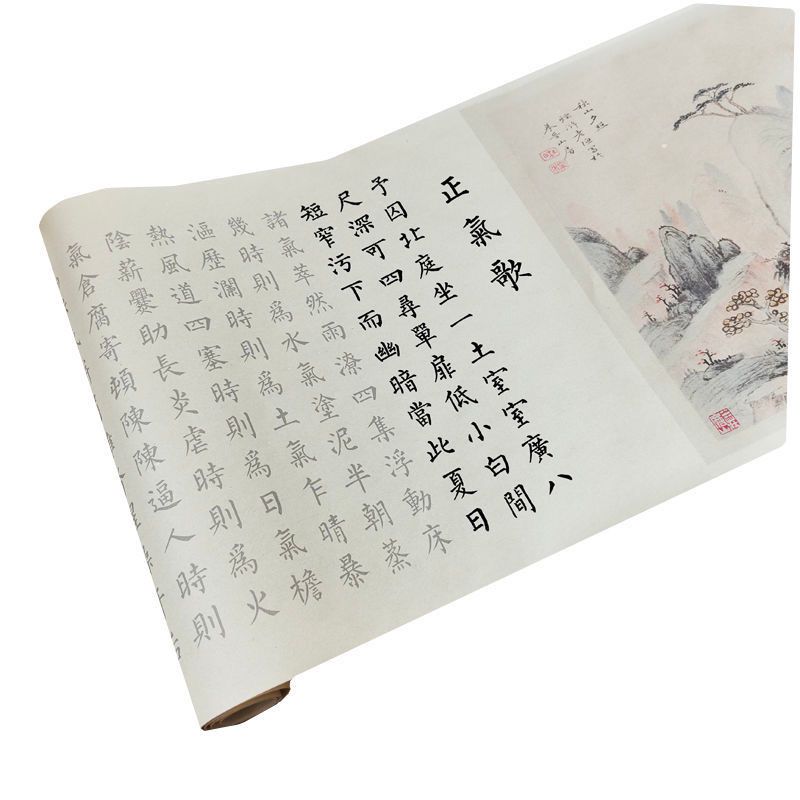 秋山夕照
正氣歌
予囚北庭坐一土室室廣八
尺深可四尋單扉低小白間
短窄污下而幽暗當此夏日
諸氣萃然雨潦四集浮動床
幾時則爲水氣塗泥半朝蒸
漚歷瀾時則爲土氣乍晴暴
熱風道四塞時則爲日氣檐
陰薪爨助長炎虐時則爲火
氣倉腐寄頓陳陳逼人時則